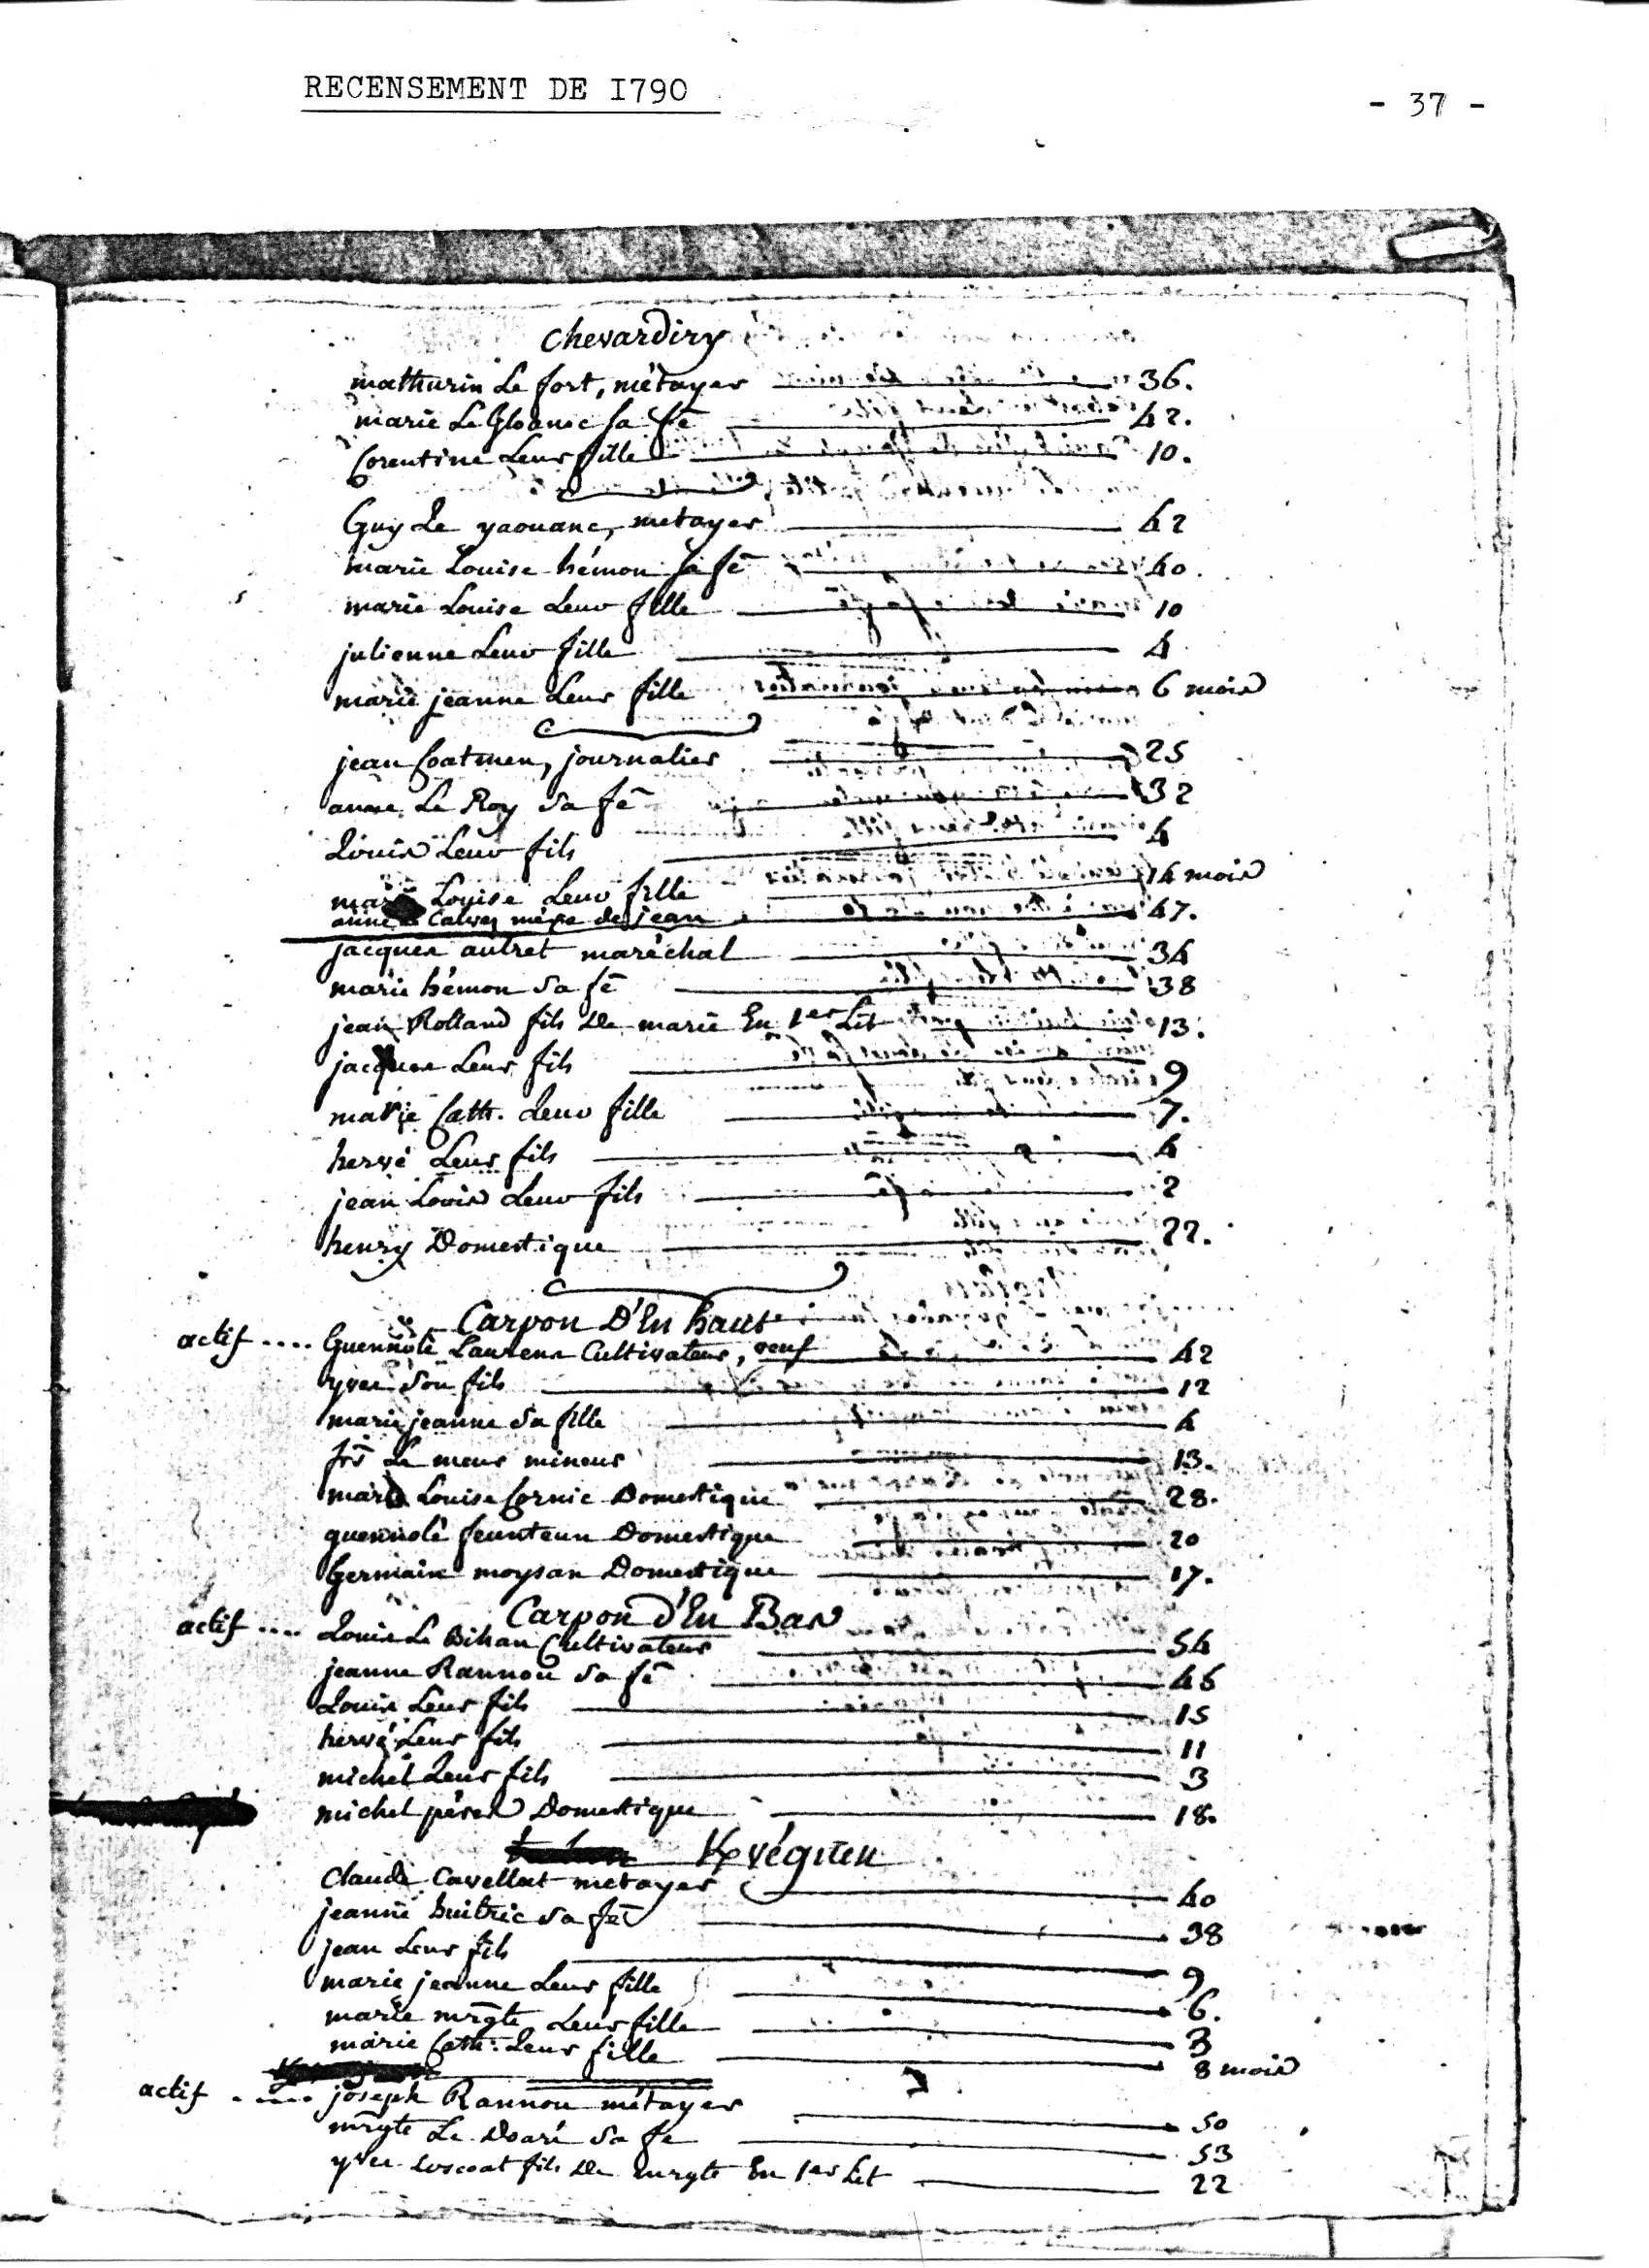 RECENSEMENT DE I790
- 37 -
Chevardiry
mathurin Le fort, métayer 36.
marie Le Gloanec sa fē 42.
Corentine Leur fille 10.
Guy Le yaouanc, metayer 42
marie Louise hémon sa fē 40.
marie Louise Leur fille 10
julienne Leur fille 4
marie jeanne Leur fille 6 mois
jean Coatmen, journalier 25
anne Le Roy sa fē 32
Louis Leur fils 4
marie Louise Leur fille 14 mois
anne Calvez mère de jean 47.
jacques autret maréchal 34
marie hémon sa fē 38
jean Rolland fils De marie En 1er Lit 13.
jacques Leur fils 9
marie Cath. Leur fille 7.
hervé Leur fils 4
jean Louis Leur fils 2
henry Domestique 22.
Carpon D'En haut
actif .... Guennolé Laurens Cultivateur, veuf 42
yves son fils 12
marie jeanne sa fille 4
frs̄ Le meur mineur 13.
marie Louise Cornic Domestique 28.
guennolé feunteun Domestique 20
Germain moysan Domestique 17.
Carpon d'En Bas
actif .... Louis Le Bihan Cultivateur 54
jeanne Rannou sa fē 46
Louis Leur fils 15
hervé Leur fils 11
michel Leur fils 3
michel péres Domestique 18.
Kvéguen
Claude Cavellat metayer 40
jeanne huitric sa fē 38
jean Leur fils 9
marie jeanne Leur fille 6.
marie mrḡte Leur fille 3
marie Cath. Leur fille 8 mois
actif .... joseph Rannou métayer 50
mrḡte Le Doaré sa fe 53
yves Loscoat fils De mrgte En 1er Lit 22